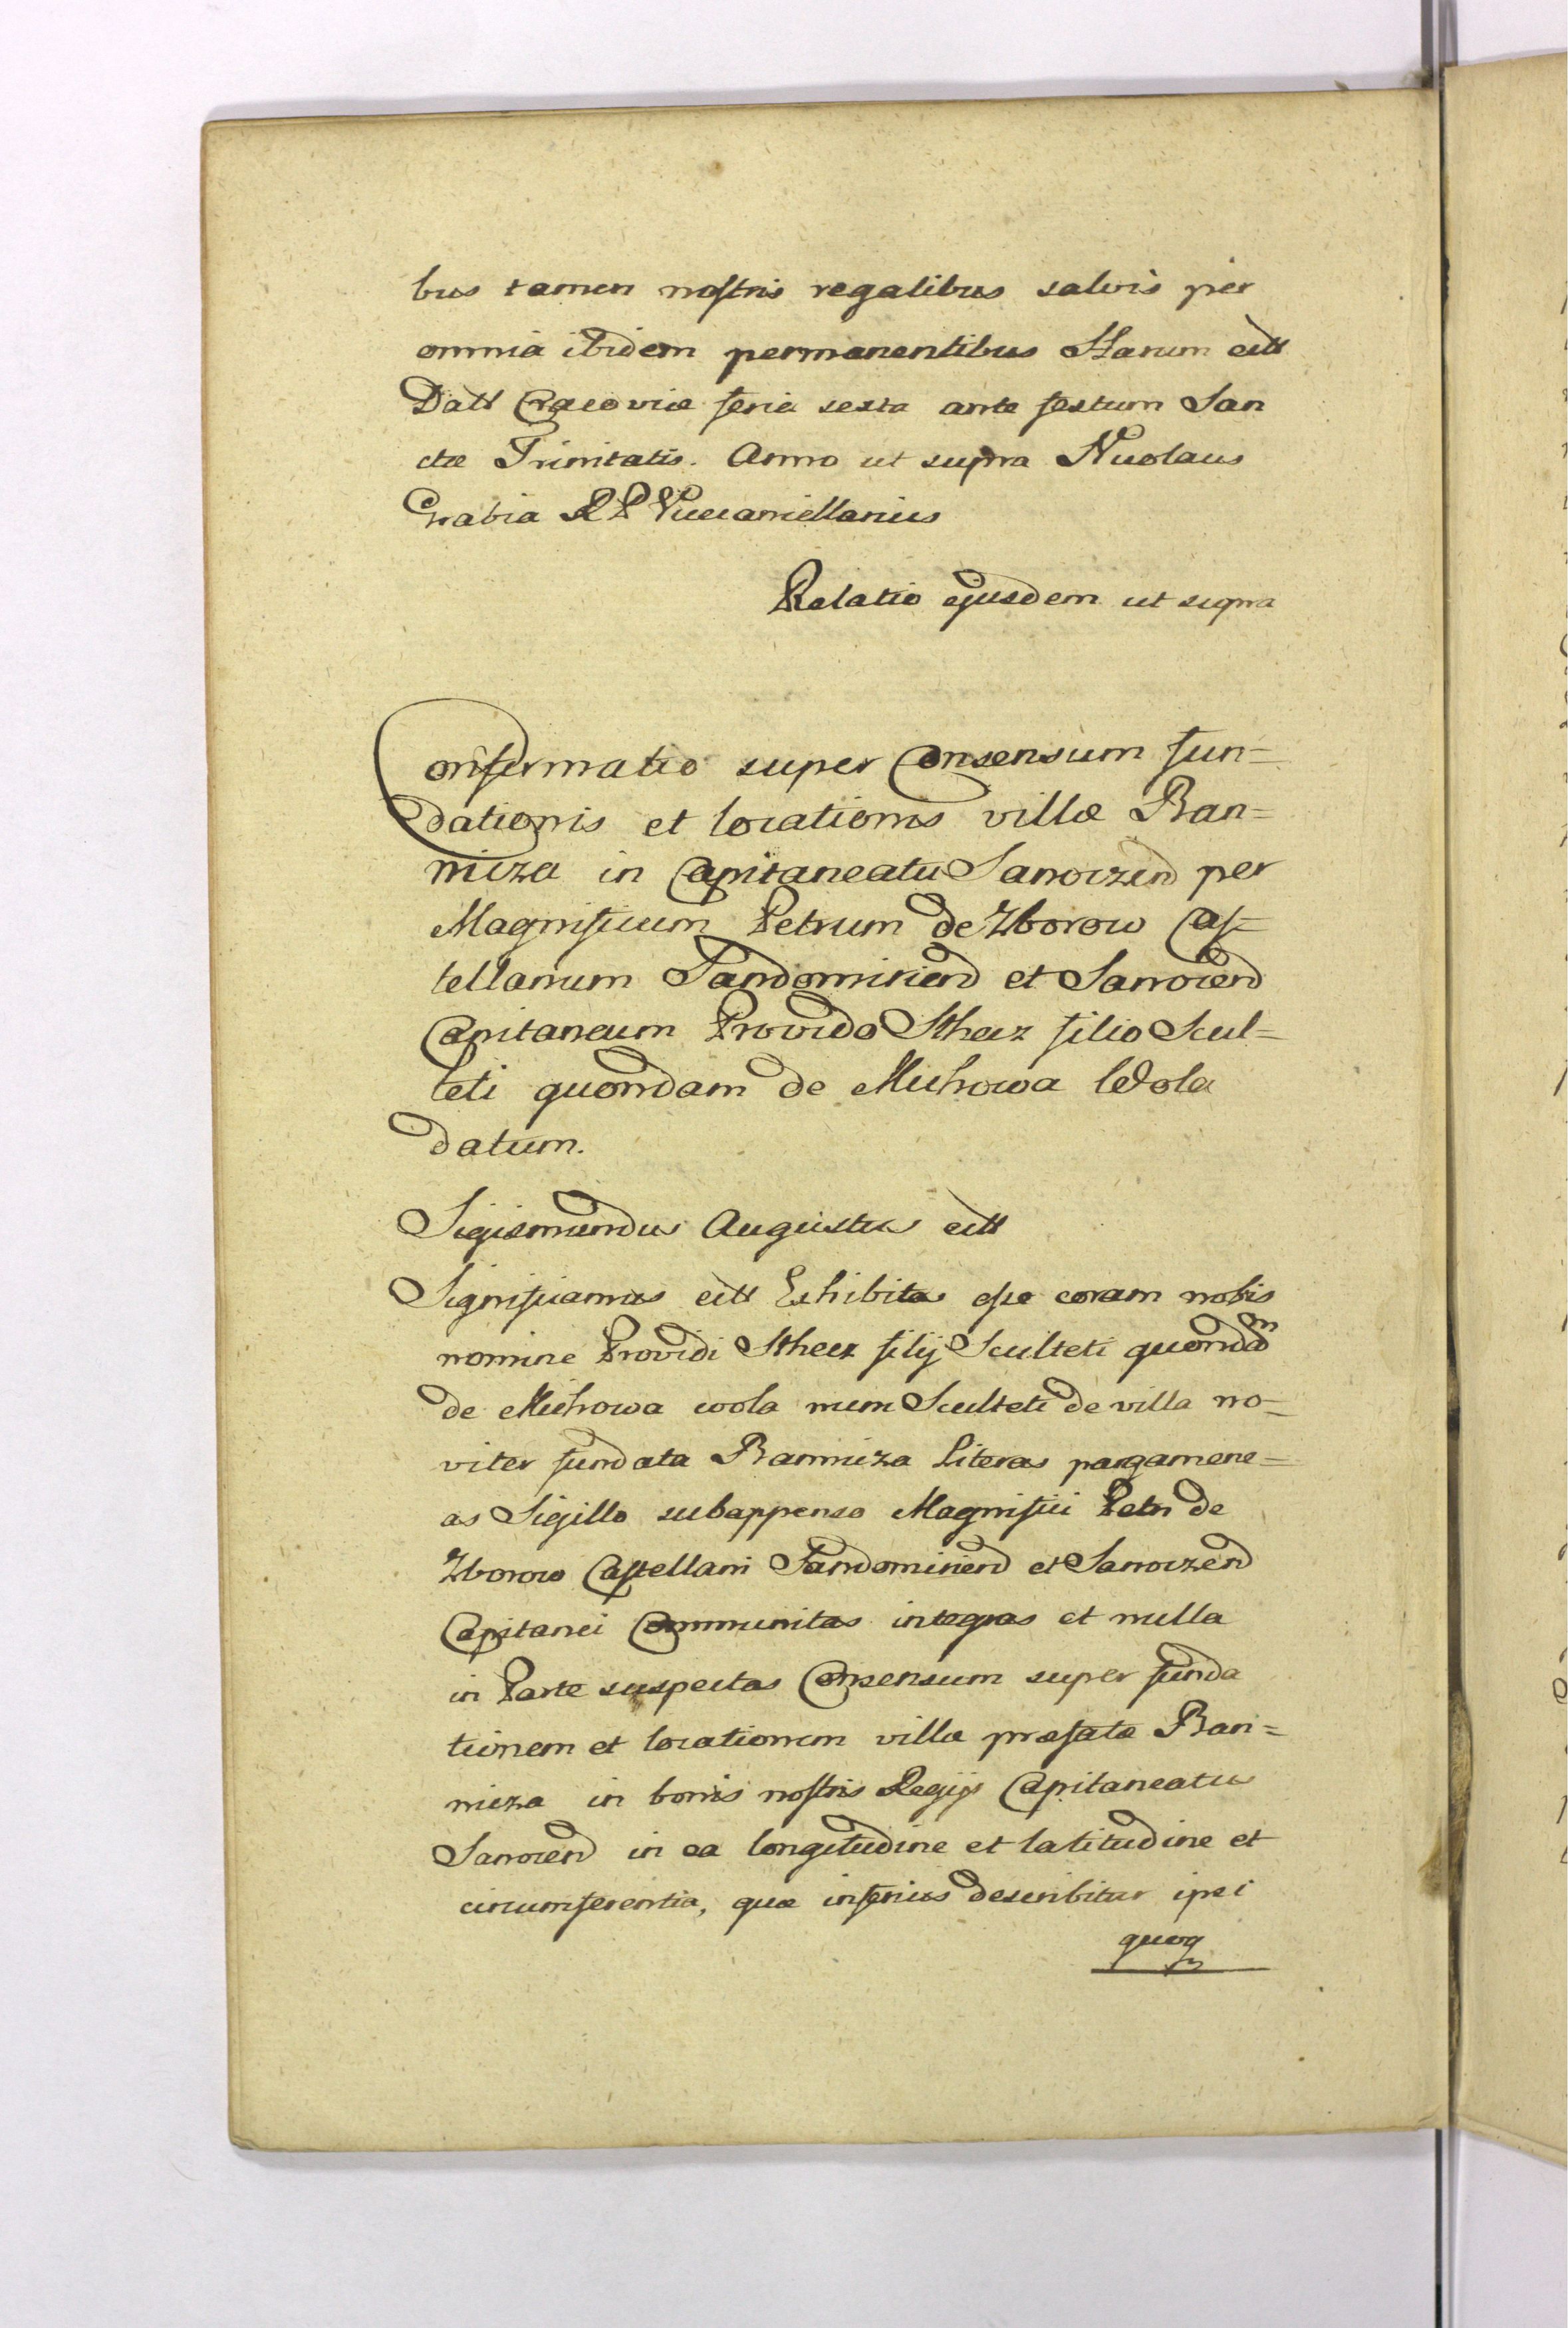 bus tamen nostris regalibus salvis per
omnia ibidem permanentibus Harum ett
Datt Cracoviæ feria sexta ante festum San
ctæ Trinitatis. Anno ut supra Nicolaus
Grabia RP Vicecancellarius
Relatio ejusdem ut supra
Confirmatio super Consensum fun=
dationis et locationis villæ Ban=
nicza in Capitaneatu Sanoczen per
Magnificum Petrum de Zborow Cas=
tellanum Sandomirien et Sanocen
Capitaneum Provido Sthecz filio Scul=
teti quondam de Michowa Wola
datum.
Sigismundus Augustus ett
Significamus ett Exhibitas esse coram nobis
nomine Providi Sthecz filij Sculteti quondam
de Michowa wola nunc Sculteti de villa no=
viter fundata Bannicza Literas pargamene=
as Sigillo subappenso Magnifici Petri de
Zborow Castellani Sandomirien et Sanoczen
Capitanei Communitas integras et nulla
in Parte suspectas Consensum super funda
tionem et locationem villæ præfatæ Ban=
nicza in bonis nostris Regijs Capitaneatu
Sanocen in ea longitudine et latitudine et
circumferentia, quæ inferius describitur ipsi
quoq